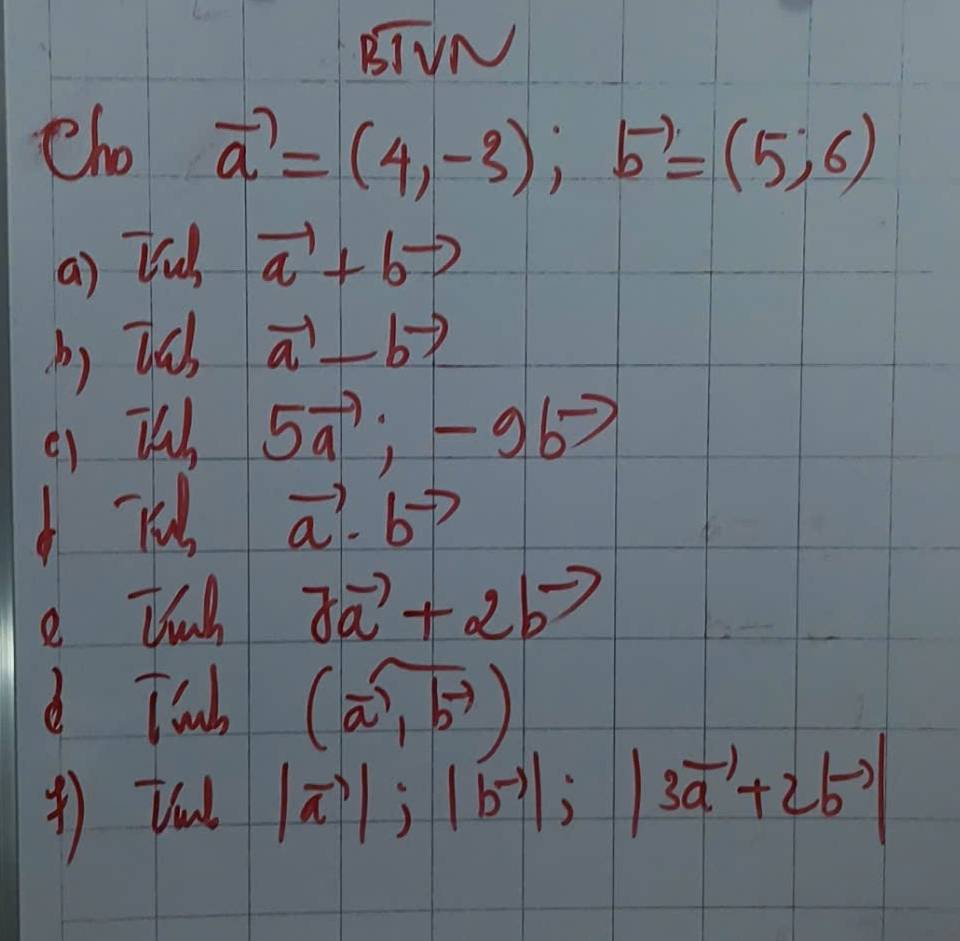 BTVN
Cho a⃗ = (4,-3); b⃗ = (5;6)
a) Tính a⃗ + b⃗
b) Tính a⃗ - b⃗
c) Tính 5a⃗ ; -9b⃗
d Tính a⃗ . b⃗
e Tính 7a⃗ + 2b⃗
d Tính (a⃗, b⃗)
f) Tính |a⃗| ; |b⃗| ; |3a⃗ + 2b⃗|